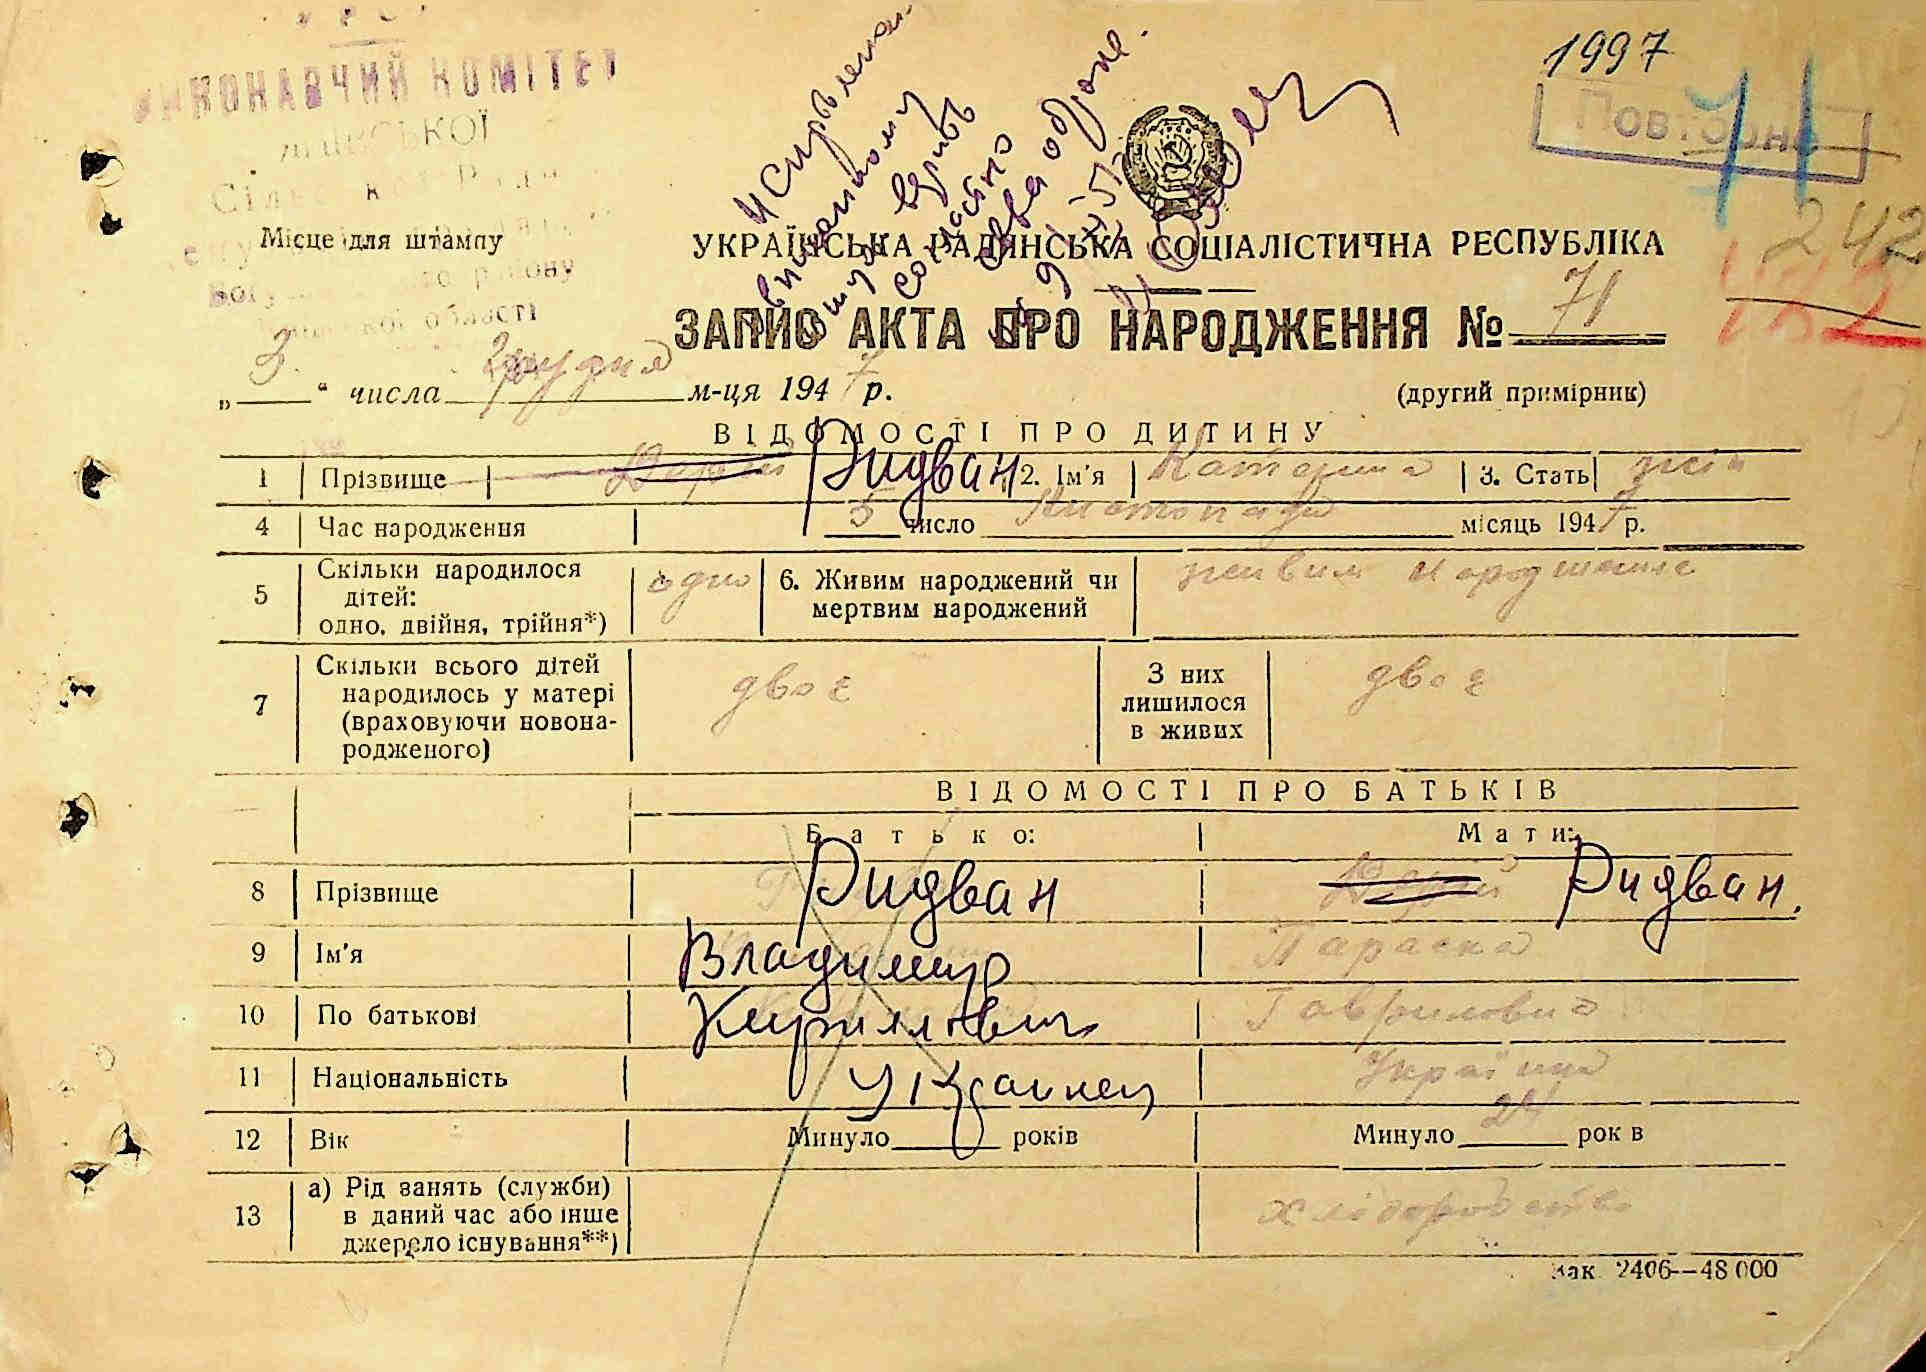 1997
ВИКОНАВЧИЙ КОМІТЕТ
Повторне
71
242
Місце для штампу
області
Исправлена
согласно
УКРАЇНСЬКА РАДЯНСЬКА СОЦІАЛІСТИЧНА РЕСПУБЛІКА
ЗАПИС АКТА ПРО НАРОДЖЕННЯ № 71
„ 3 “ числа Грудня м-ця 1947 р. (другий примірник)
ВІДОМОСТІ ПРО ДИТИНУ
1 Прізвище Ридван 2. Ім'я Катерина 3. Стать жін
4 Час народження 5 число Листопада місяць 1947 р.
5 Скільки народилося дітей: одно, двійня, трійня*) одно 6. Живим народжений чи мертвим народжений живим
7 Скільки всього дітей народилось у матері (враховуючи новонародженого) двоє З них лишилося в живих двоє
ВІДОМОСТІ ПРО БАТЬКІВ
Батько: Мати:
8 Прізвище Ридван Ридван.
9 Ім'я Владимир Параска
10 По батькові Кириллович Гаврилович
11 Національність Украинец Українка
12 Вік Минуло років Минуло 24 рок в
13 а) Рід занять (служби) в даний час або інше джерело існування**) хліборобство
Зак. 2406—48 000